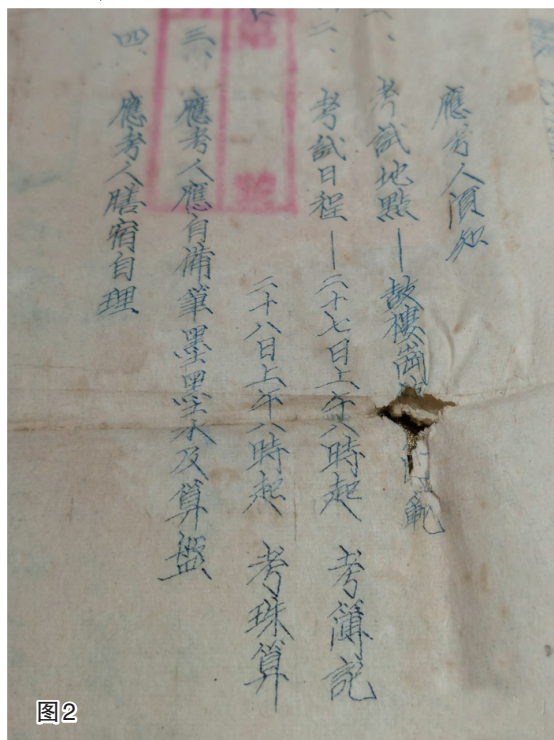 應考人須知
一、考試地點—鼓樓崗
範
二、考試日程—二十七日上午八時起 考簿記
二十八日上午八時起 考珠算
三、應考人應自備筆墨墨水及算盤
四、應考人膳宿自理
图2